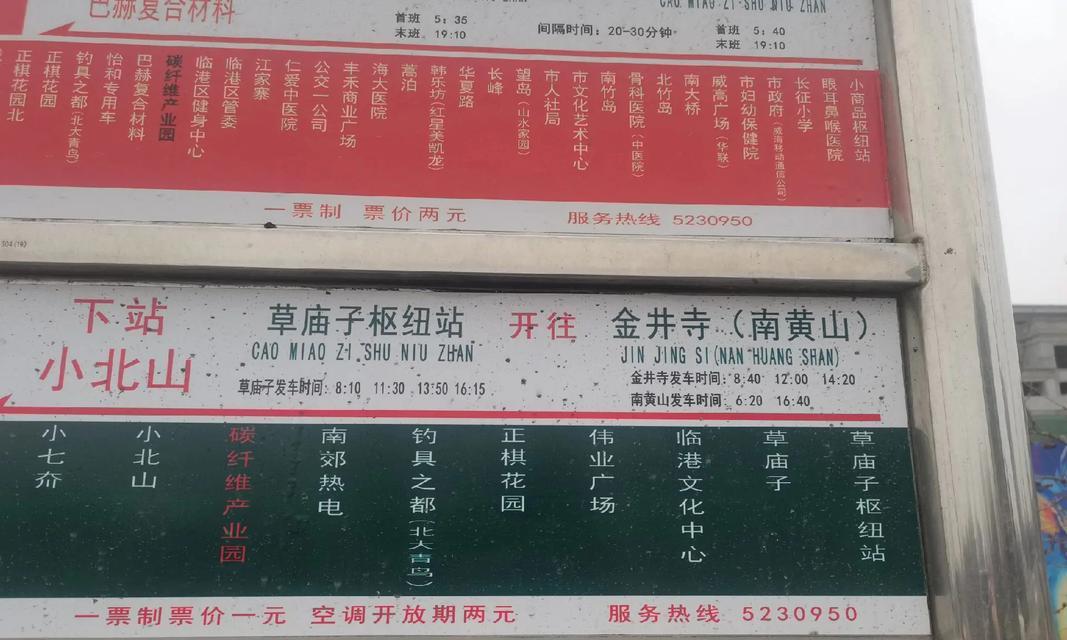 巴赫复合材料
CAO MIAO ZI SHU NIU ZHAN
首班 5:35
末班 19:10
间隔时间:20-30分钟
首班 5:40
末班 19:10
正棋花园北
正棋花园
钓具之都(北大青鸟)
怡和专用车
巴赫复合材料
碳纤维产业园
临港区健身中心
临港区管委
江家寨
仁爱中医院
公交一公司
丰禾商业广场
海大医院
蒿泊
韩乐坊(红星美凯龙)
华夏路
长峰
望岛(山水家园)
市人社局
市文化艺术中心
南竹岛
骨科医院(中医院)
北竹岛
南大桥
威高广场(华联)
市妇幼保健院
市政府(威海移动通信公司)
长征小学
眼耳鼻喉医院
小商品枢纽站
一票制 票价两元
服务热线 5230950
下站
小北山
草庙子枢纽站
开往
金井寺(南黄山)
CAO MIAO ZI SHU NIU ZHAN
JIN JING SI(NAN HUANG SHAN)
草庙子发车时间:8:10 11:30 13:50 16:15
金井寺发车时间:8:40 12:00 14:20
南黄山发车时间:6:20 16:40
小七夼
小北山
碳纤维产业园
南郊热电
钓具之都(北大青鸟)
正棋花园
伟业广场
临港文化中心
草庙子
草庙子枢纽站
一票制票价一元 空调开放期两元
服务热线 5230950